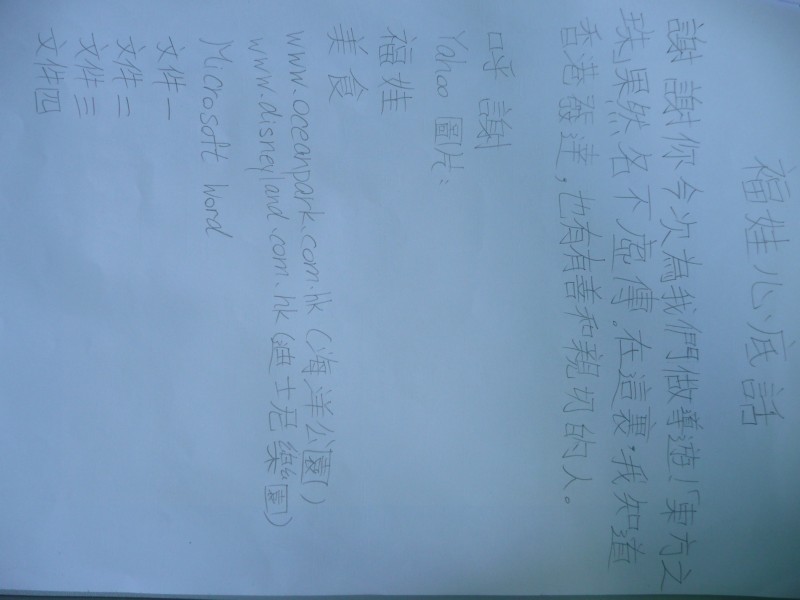 福娃心底話
謝謝你今次為我們做導遊!「東方之
珠」果然名不虛傳。在這裏,我知道
香港發達,也有友善和親切的人。
呼謝
Yahoo 圖片:
福娃
美食
www.oceanpark.com.hk (海洋公園)
www.disneyland.com.hk (迪士尼樂園)
Microsoft word
文件一
文件二
文件三
文件四